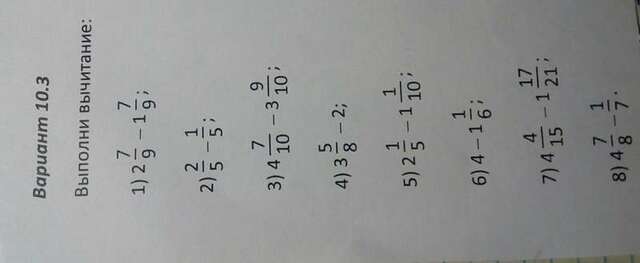 Вариант 10.3
Выполни вычитание:
1) 2 7/9 − 1 7/9;
2) 2/5 − 1/5;
3) 4 7/10 − 3 9/10;
4) 3 5/8 − 2;
5) 2 1/5 − 1 1/10;
6) 4 − 1 1/6;
7) 4 4/15 − 1 17/21;
8) 4 7/8 − 1/7.